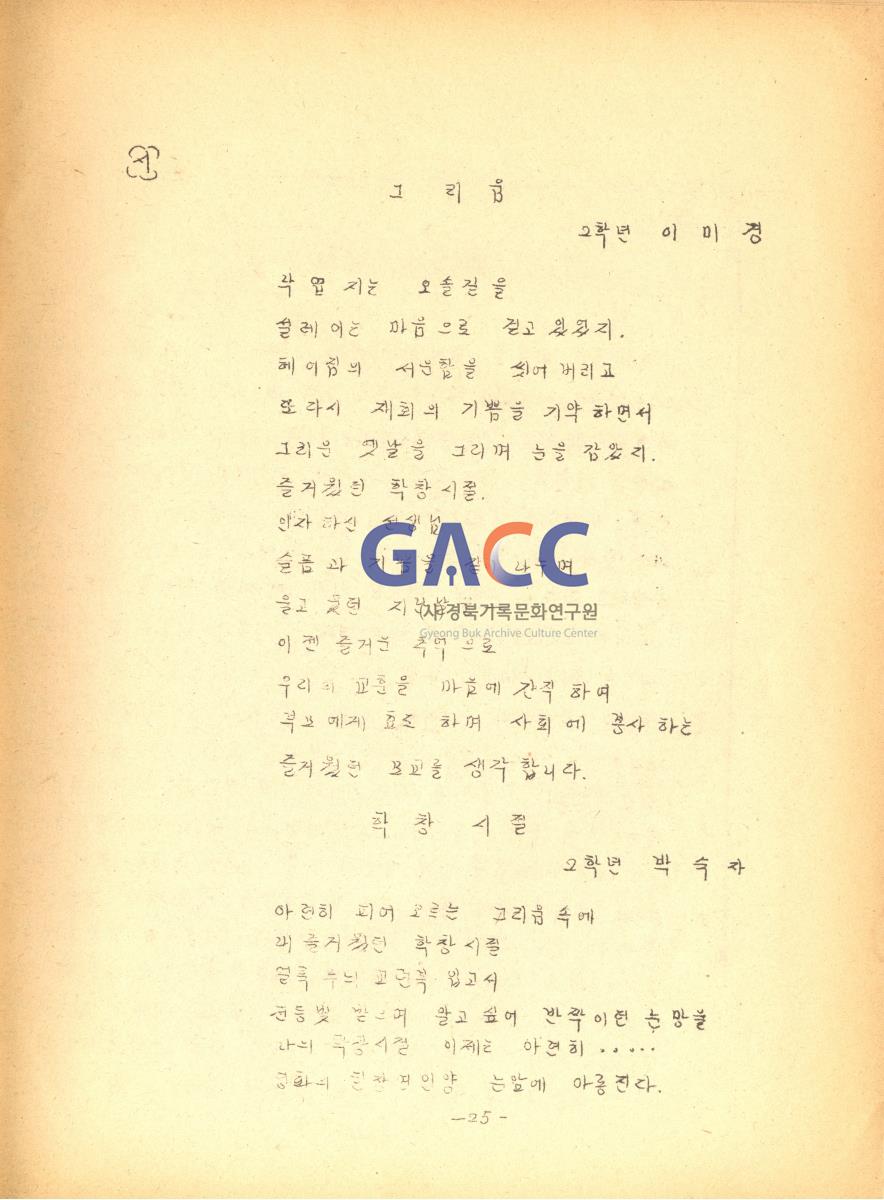 시
그 리 움
2학년 이 미 경
낙엽 지는 오솔길을
설레이는 마음으로 걷고 있었지.
헤어짐의 서운함을 씻어 버리고
또 다시 재회의 기쁨을 기약 하면서
그리운 옛날을 그리며 눈을 감았지.
즐거웠던 학창시절.
인자 하신 선생님
슬픔과 기쁨을 같이 나누며
울고 웃던
이젠 즐거운 추억으로
우리의 교훈을 마음에 간직 하여
부모에게 효도 하며 사회에 봉사 하는
즐거웠던 모교를 생각합니다.
GACC
(사)경북기록문화연구원
Gyeong Buk Archive Culture Center
학 창 시 절
2학년 박 숙 자
아련히 피어 오르는 그리움 속에
내 즐거웠던 학창시절
얼룩 무늬 교련복 입고서
전등빛 받으며 알고 싶어 반짝이던 눈망울
나의 학창시절 이제는 아련히 .....
영화의 한 장면인양 눈앞에 아롱진다.
-25-